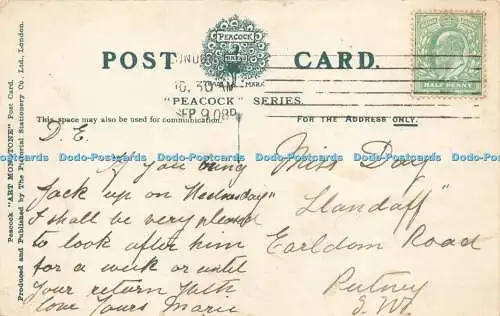 POST CARD.
PEACOCK
MARK
10.30 AM
SEP 9 08
"PEACOCK" SERIES.
HALF PENNY
This space may also be used for communication.
FOR THE ADDRESS ONLY.
Peacock "ART MONOTONE" Post Card.
Produced and Published by The Pictorial Stationery Co., Ltd., London.
D.E.
If you bring
Jack up on Wednesday
I shall be very pleased
to look after him
for a week or until
your return with
love yours Marie
Miss Day
"Llandaff"
Earldom Road
Putney
S.W.
Dodo-Postcards Dodo-Postcards Dodo-Postcards Dodo-Postcards Dodo-Postcards